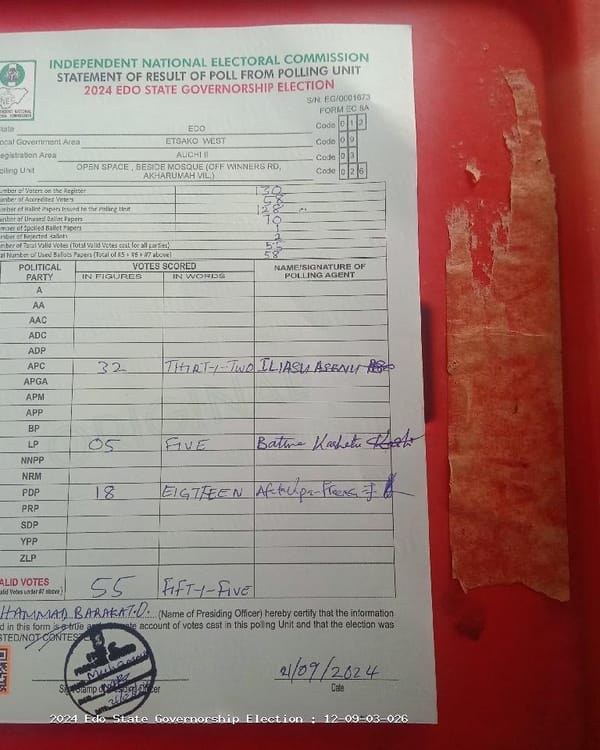 INDEPENDENT NATIONAL ELECTORAL COMMISSION
STATEMENT OF RESULT OF POLL FROM POLLING UNIT
2024 EDO STATE GOVERNORSHIP ELECTION
S/N: EG/0001673
FORM EC 8A
State EDO Code 0 1 2
Local Government Area ETSAKO WEST Code 0 9
Registration Area AUCHI II Code 0 3
Polling Unit OPEN SPACE , BESIDE MOSQUE (OFF WINNERS RD, AKHARUMAH VIL,) Code 0 2 6
Number of Voters on the Register 130
Number of Accredited Voters 58
Number of Ballot Papers Issued to the Polling Unit 128
Number of Unused Ballot Papers 70
Number of Spoiled Ballot Papers 1
Number of Rejected Ballots 2
Number of Total Valid Votes (Total Valid Votes cast for all parties) 55
Total Number of Used Ballots Papers (Total of #5 + #6 + #7 above) 58
POLITICAL PARTY VOTES SCORED NAME/SIGNATURE OF POLLING AGENT
IN FIGURES IN WORDS
A
AA
AAC
ADC
ADP
APC 32 THIRTY-TWO ILIASU
APGA
APM
APP
BP
LP 05 FIVE
NNPP
NRM
PDP 18 EIGTEEN
PRP
SDP
YPP
ZLP
VALID VOTES 55 FIFTY-FIVE
HAMMAD BARAKAT.O. (Name of Presiding Officer) hereby certify that the information
in this form is a true account of votes cast in this polling Unit and that the election was
STED/NOT CONTESTED
21/09/2024
Date
2024 Edo State Governorship Election : 12-09-03-026